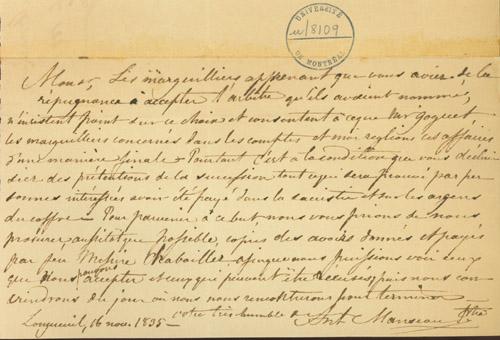 UNIVERSITÉ
u/8109
DE MONTRÉAL
Monsr, Les marguilliers apprenant que vous aviez de la
répugnance à accepter l'arbitre qu'ils avaient nommé,
n'insistent point sur ce choix et consentent à ce que
les marguilliers concernés dans les comptes et moi réglions ces affaires
d'une manière finale - Pourtant c'est à la condition que vous
des prétentions de la succession tout ce qui sera prouvé par per
sonnes intéressées avoir été payé dans la sacristie et sur les argens
du coffre - Pour parvenir à ce but nous vous prions de nous
procurer aussitôt que possible, copies des avoirs donnés et payés
par feu Messire Chaboillez afin que nous puissions voir ceux
que nous pouvons accepter et ceux qui peuvent être recusés puis nous con
viendrons du jour où nous nous rencontrerons pour terminer
Longueuil, 16 novr. 1835 - votre très humble Ant. Manseau Ptre